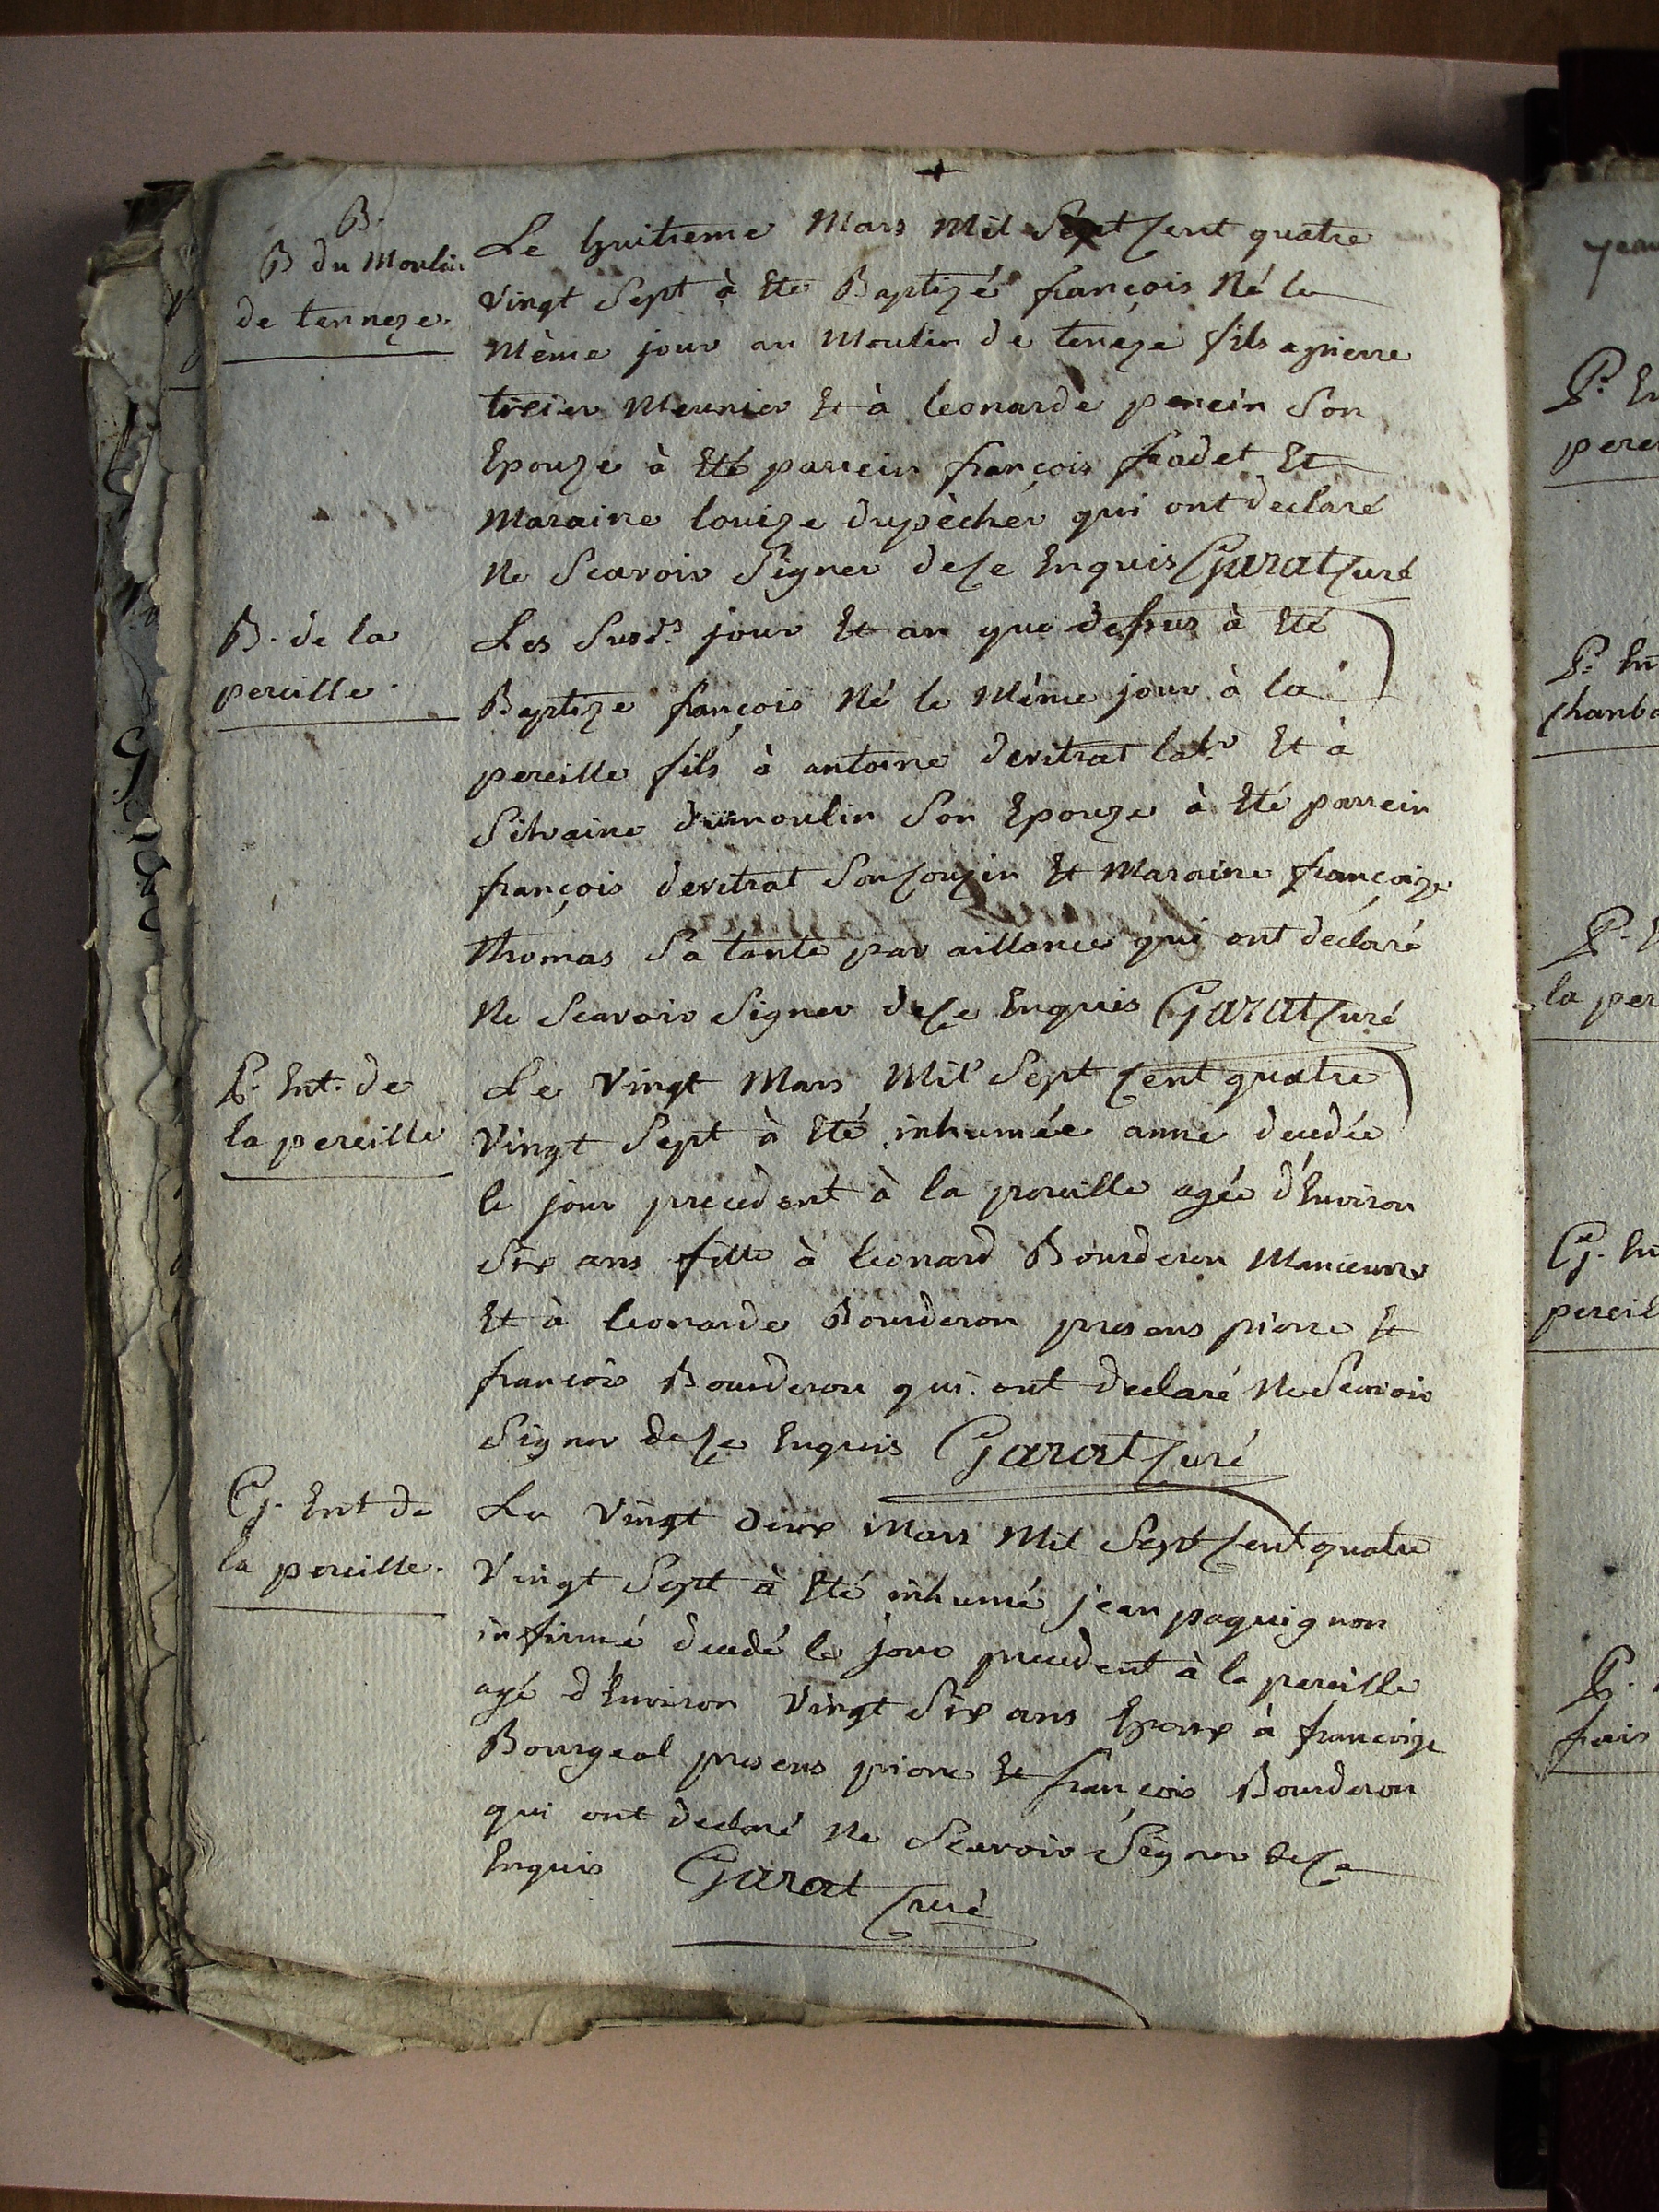 B.
B du Moulin
de tenneze.
Le huitieme Mars Mil Sept Cent quatre
vingt Sept à Eté Baptizé françois Né le
Même jour au Moulin de teneze fils a pierre
Meunier Et à leonarde perein Son
Epouze à Eté parrein françois fradet Et
Maraine louize dupècher qui ont declaré
Ne Scavoir Signer de Ce Enquis Garat Curé
B. de la
pereille.
Les Susds. jour Et an que dessus à Eté
Baptize françois Né le Même jour à la
pereille fils à antoine devitrat labr Et à
Silvaine dumoulin Son Epouze à Eté parrein
françois devitrat Son Couzin Et Maraine françoize
thomas Sa tante par aillance qui ont declaré
Ne Scavoir Signer de Ce Enquis Garat Curé
P. Ent. de
la pereille
Le vingt Mars Mil Sept Cent quatre
vingt Sept à Eté inhumée anne decedée
le jour precedent à la pereille agée d'Environ
Six ans fille à leonard Bourderon
Et à leonarde Bourderon presens pierre Et
françois Bourderon qui ont declaré Ne Scavoir
Signer de Ce Enquis Garat Curé
G. Ent de
la pereille.
Le vingt deux Mars Mil Sept Cent quatre
vingt Sept à Eté inhumé jean paquignon
infirmé decedé le jour precedent à la pereille
agé d'Environ vingt Six ans Epoux à françoize
Bourgeal presens pierre Et françois Bourderon
qui ont declaré Ne Scavoir Signer de Ce
Enquis Garat Curé
perei
la per
chanb
pereil
frais